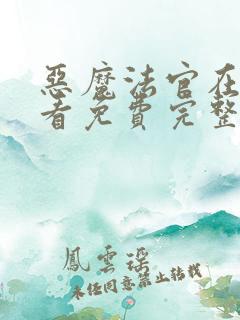 恶魔法官在
看免费完整
鳳雲瑶
未经同意禁止转载